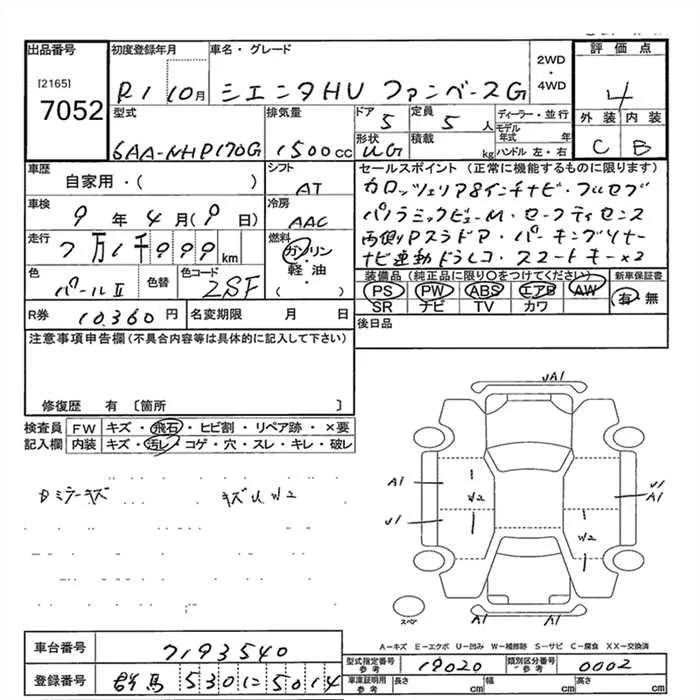 出品番号 初度登録年月 車名・グレード 2WD・4WD 評価点
[2165]
7052 R1 10月 シエンタHV ファンベースG 4
型式 排気量 ドア 5 定員 5人 ディーラー・並行 外装 内装
モデル年式 年
6AA-NHP170G 1500cc 形状 UG 積載 kg ハンドル 左・右 C B
車歴 自家用・( ) シフト AT セールスポイント (正常に機能するものに限ります)
車検 9年4月(9日) 冷房 AAC カロッツェリア8インチナビ・フルセブ
パノラミックビューM・セーフティセンス
走行 7万1千999km 燃料 ガソリン・軽・油 ( ) 両側Pスラドア・パーキングソナー
ナビ連動ドラレコ・スマートキー×2
色 パールⅡ 色替 色コード 2SF 装備品 (純正品に限り○をつけてください) 新車保証書
PS PW ABS エアB AW 有・無
SR ナビ TV カワ
R券 10,360円 名変期限 月 日 後日品
注意事項申告欄 (不具合内容等は具体的に記入して下さい)
修復歴 有 〔箇所 〕
検査員 FW キズ・飛石・ヒビ割・リペア跡・×要
記入欄 内装 キズ・汚レ・コゲ・穴・スレ・キレ・破レ
キズU W2
UA1
A1 W2 U1 A1
U1 W2
スペア A1 A1
A-キズ E-エクボ U-凹み W-補修跡 S-サビ C-腐食 XX-交換済
車台番号 7193540 型式指定番号 参考 19020 類別区分番号 参考 0002
登録番号 群馬 530 に 5014 車庫証明用 参考 長さ cm 幅 cm 高さ cm